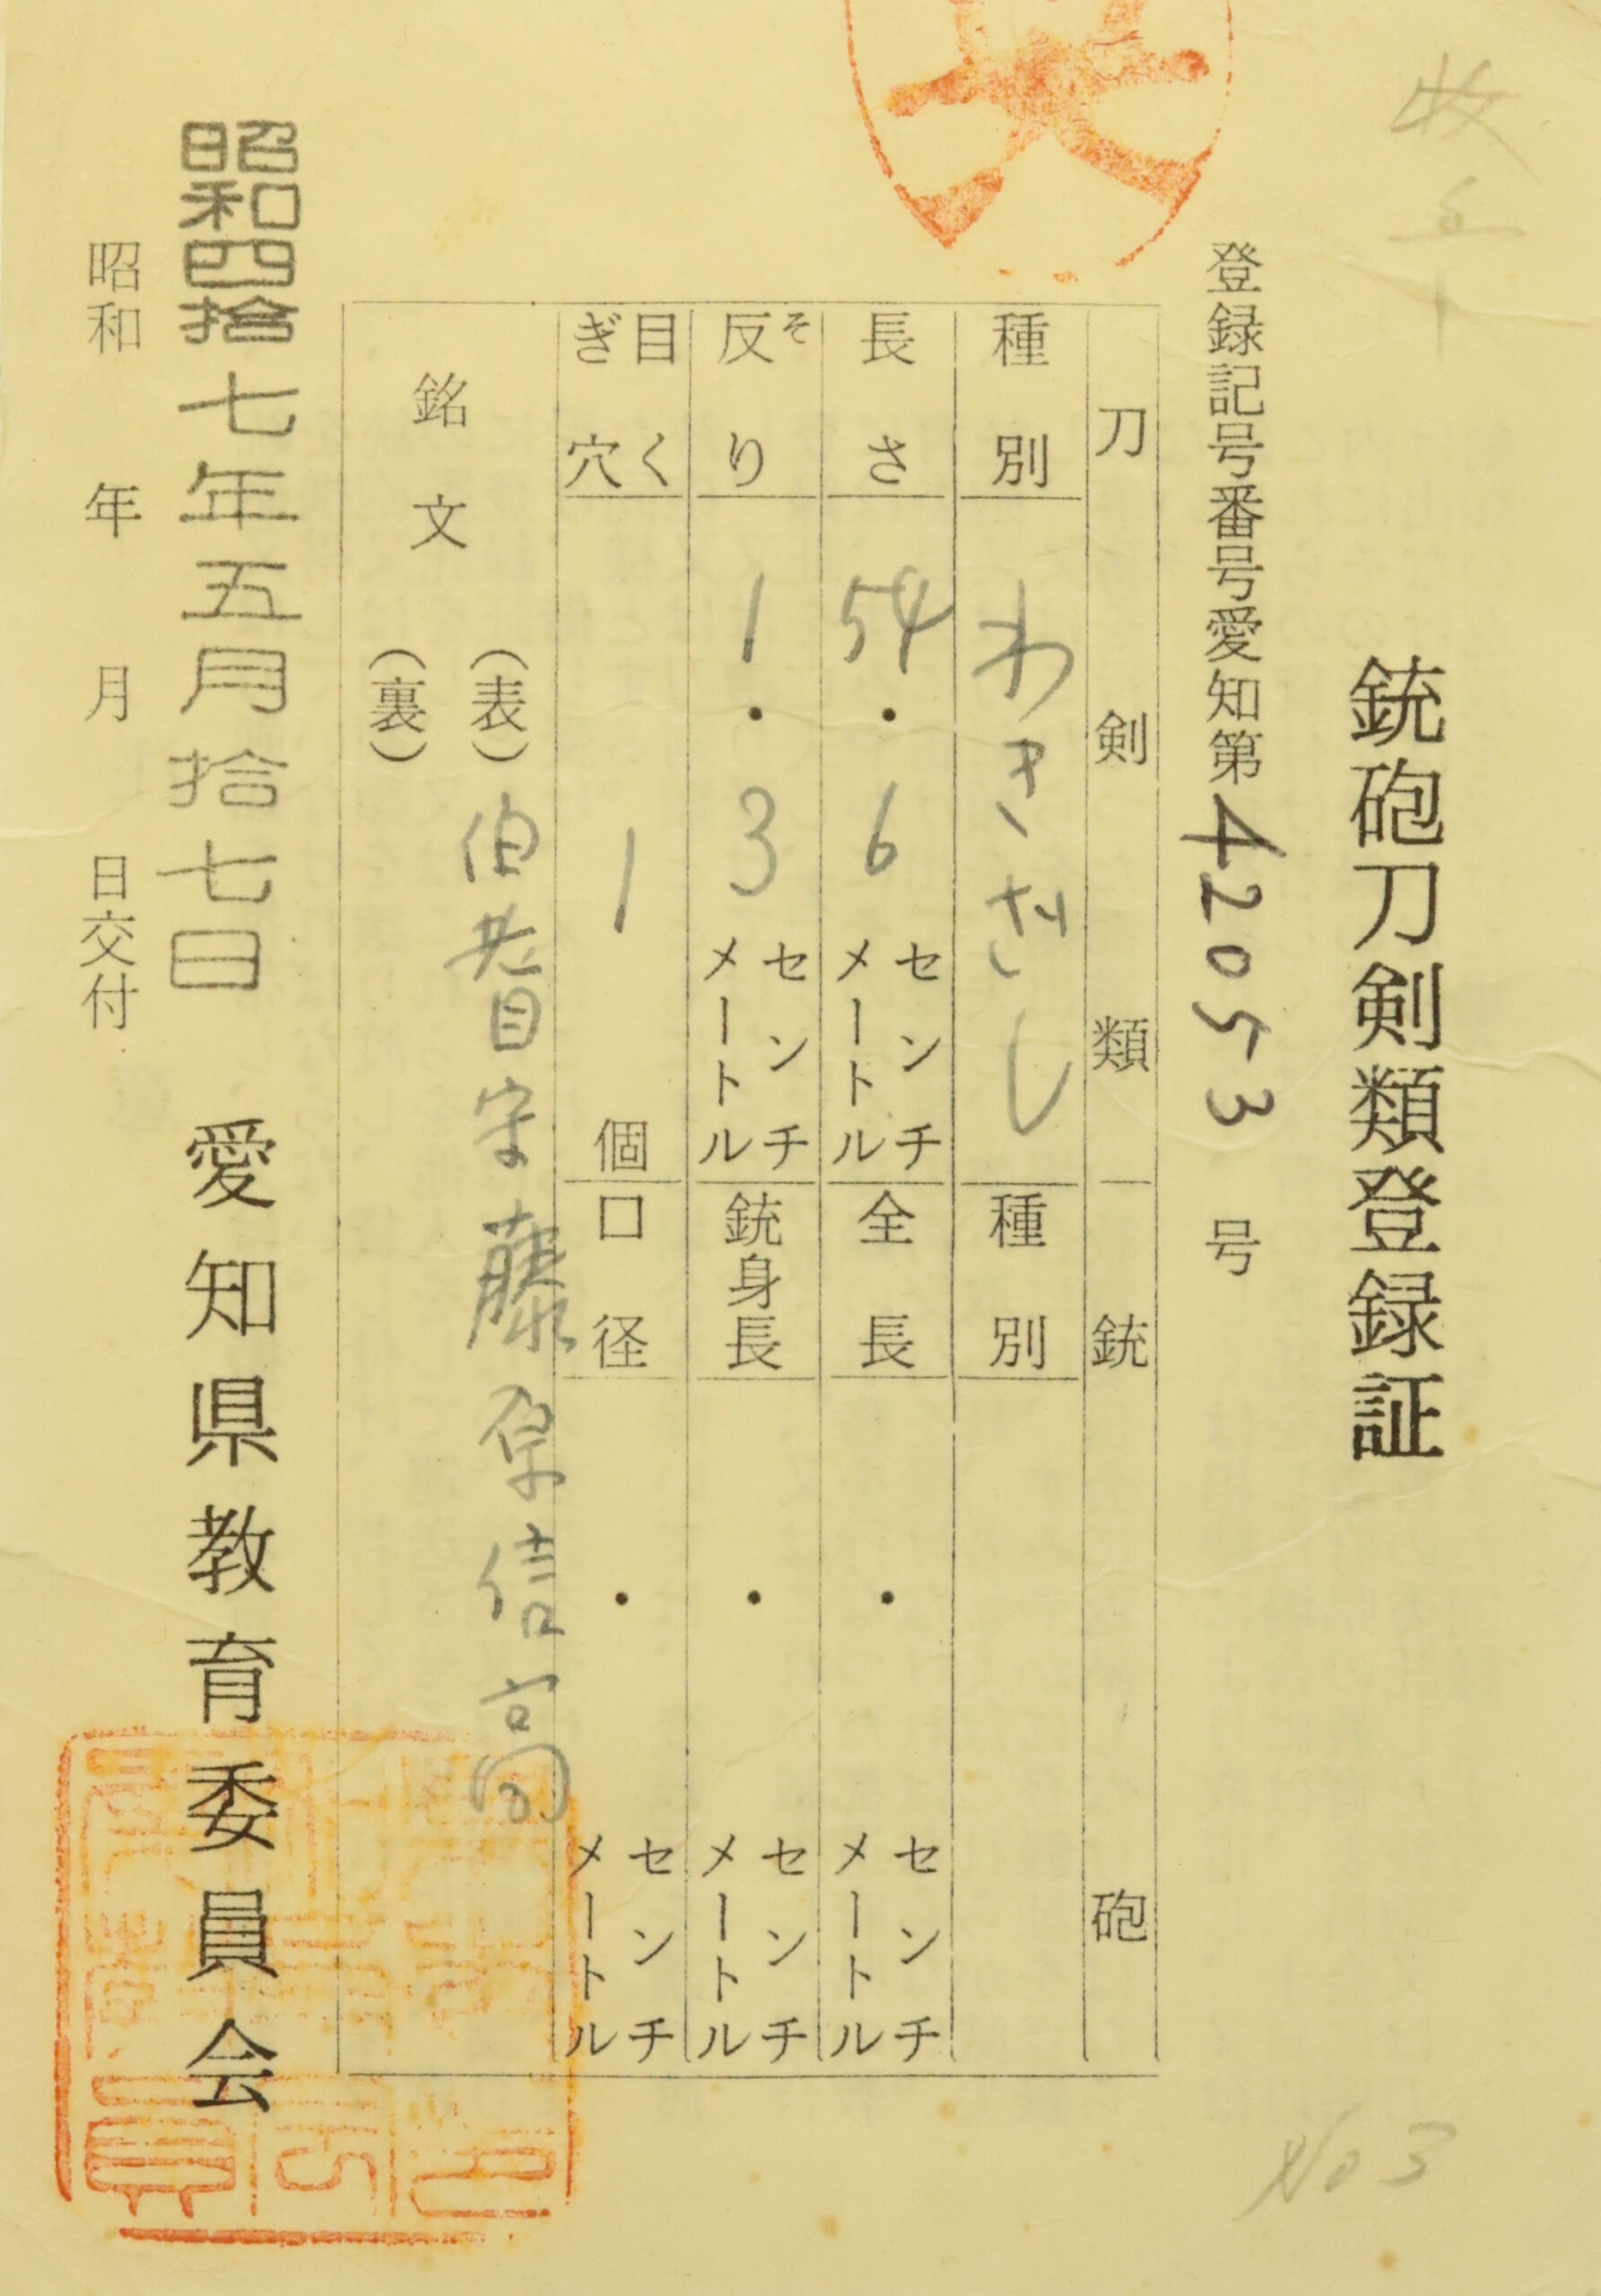 銃砲刀剣類登録証
登録記号番号愛知第42053号
刀剣類
種別 わきざし
長さ 54.6 センチメートル
反り そ 1.3 センチメートル
目くぎ穴 1 個
銃砲
種別
全長 ・ センチメートル
銃身長 ・ センチメートル
口径 ・ センチメートル
銘文
(表)伯耆守藤原信高
(裏)
昭和四拾七年五月拾七日
昭和 年 月 日交付
愛知県教育委員会
No 3